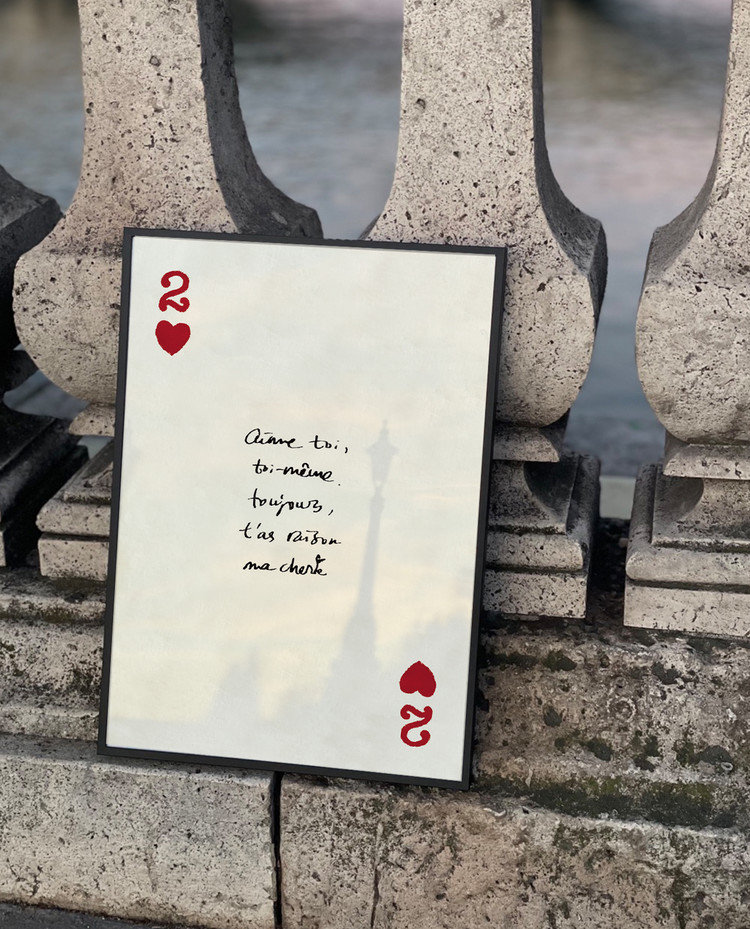 2
Aime toi,
toi-même.
toujours,
t'as raison
ma cherie
2